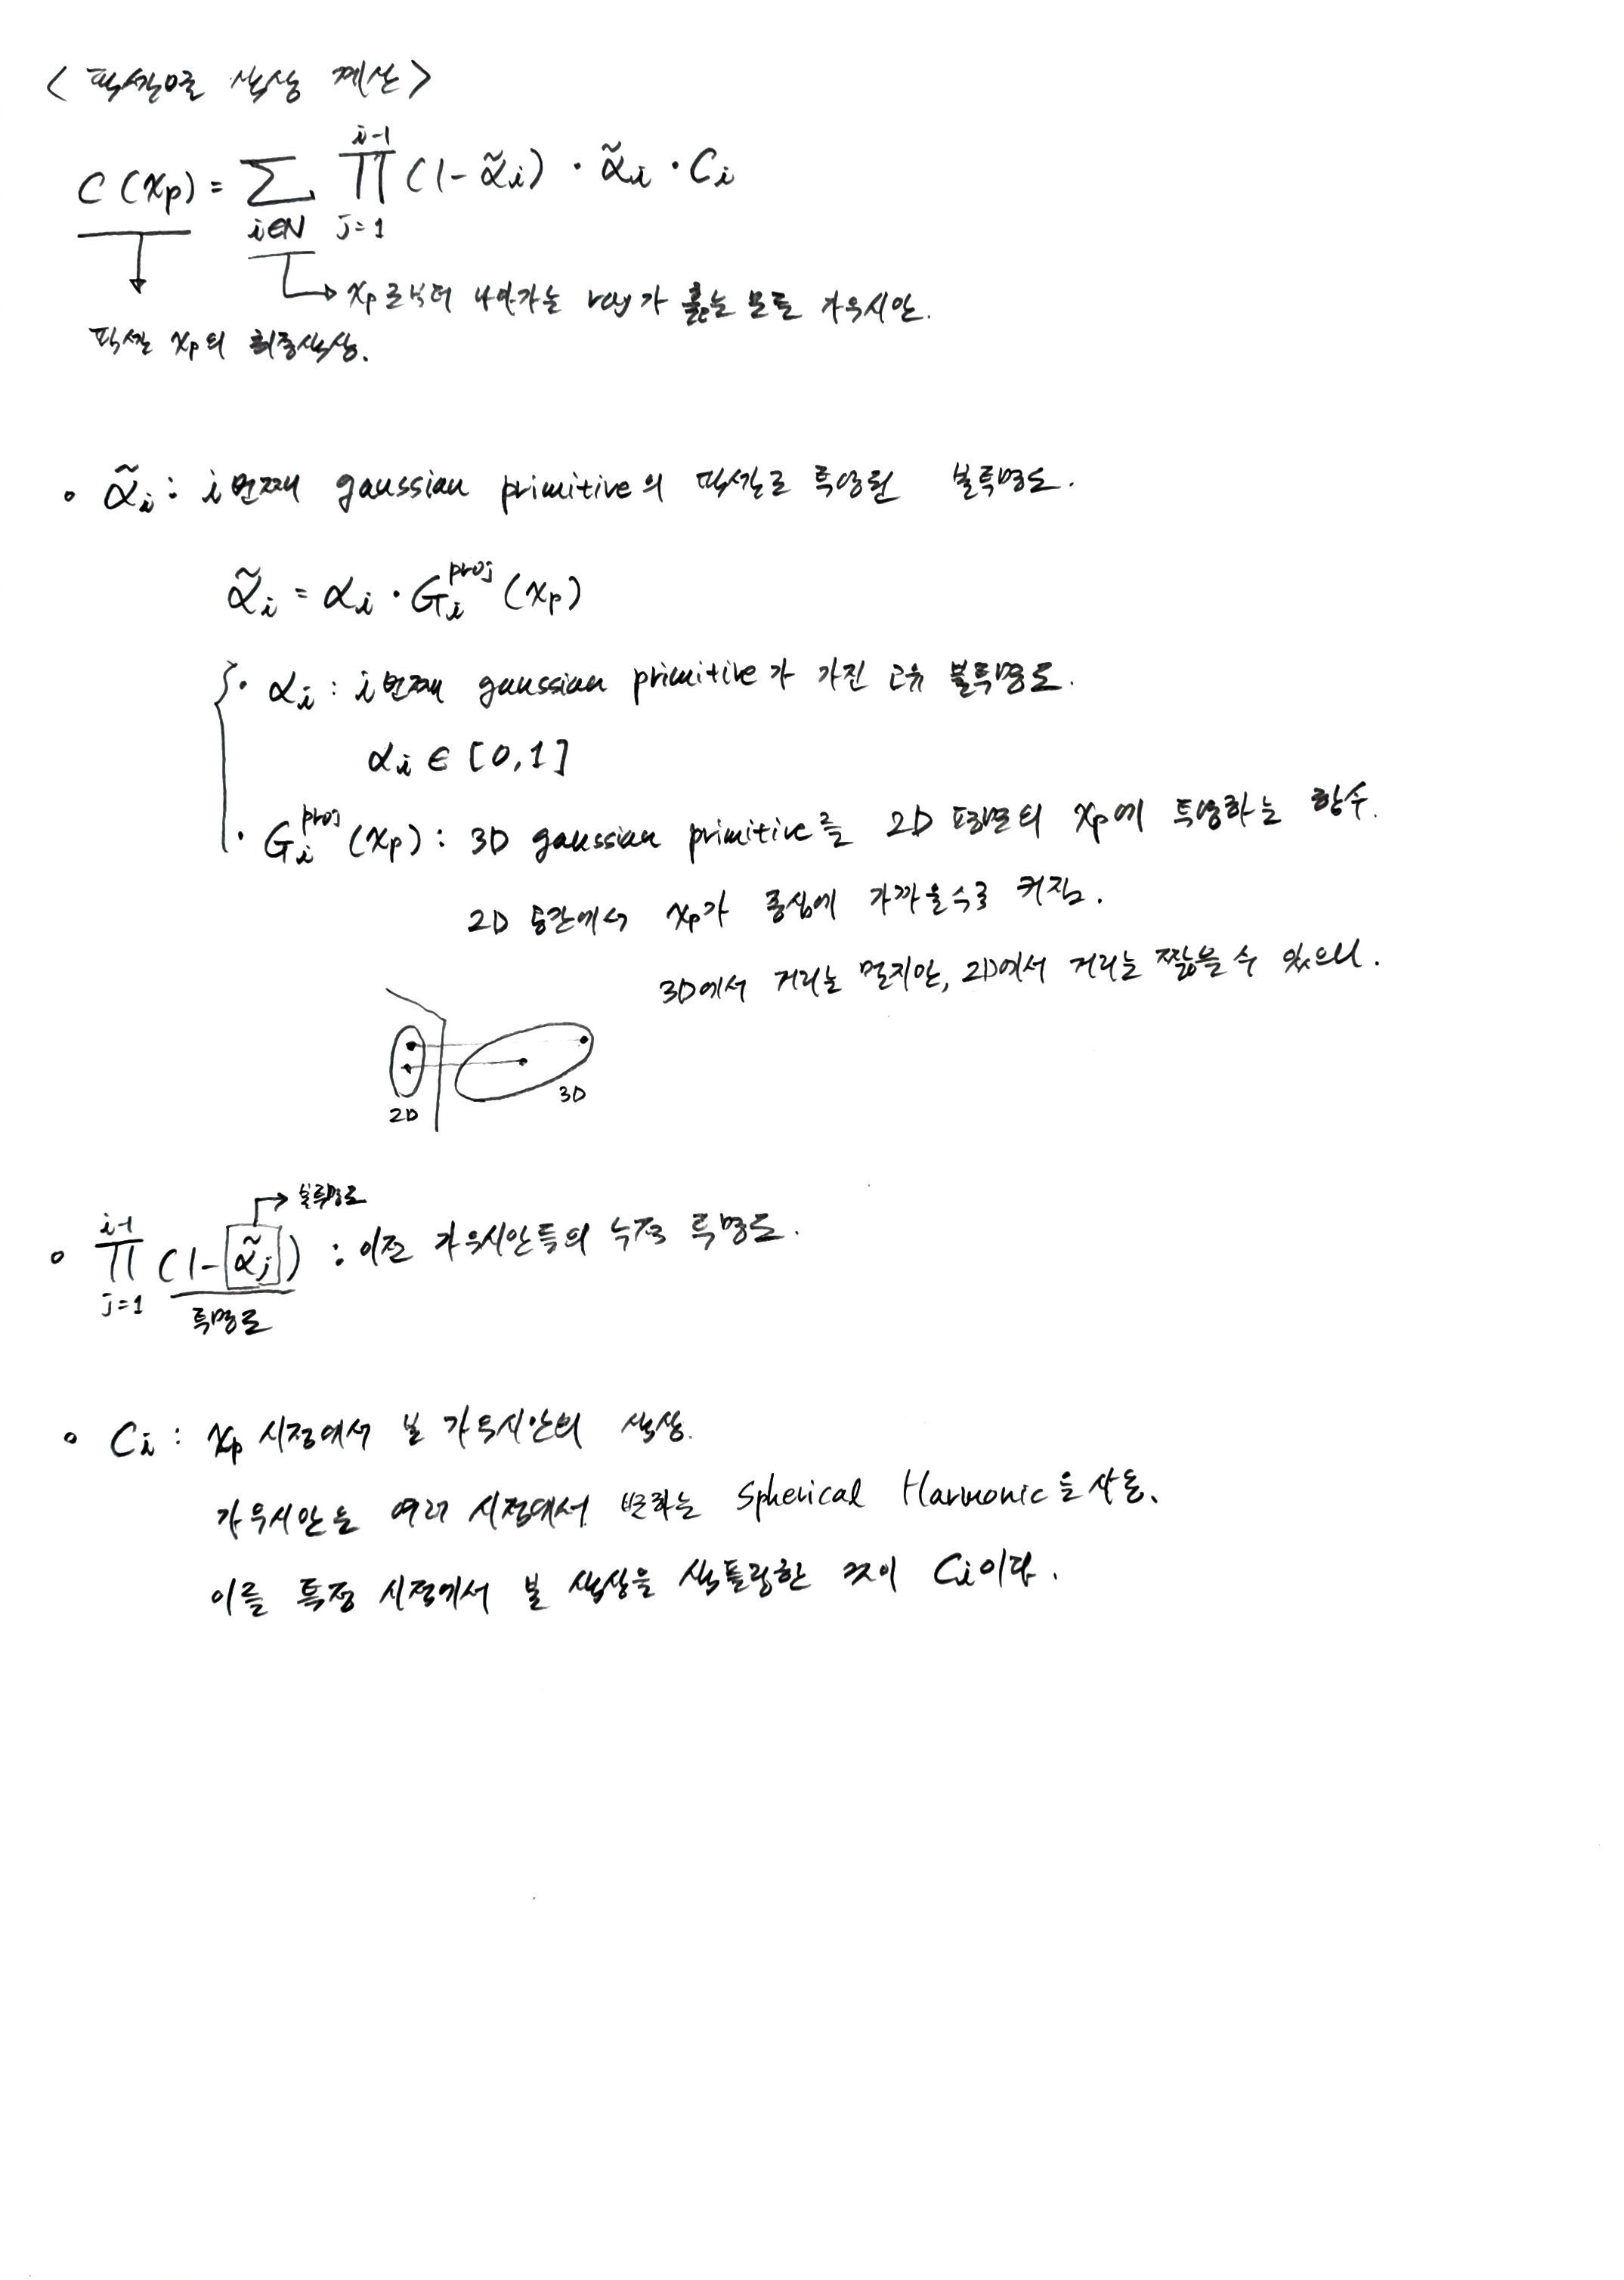 < 픽셀으로 색상 계산 >
C(xp) = Σ i∈N ∏ j=1 i-1 (1-α̃i) · α̃i · Ci
xp로부터 나아가는 ray가 뚫는 모든 가우시안.
픽셀 xp의 최종색상.
∘ α̃i : i번째 gaussian primitive의 픽셀로 투영된 불투명도.
α̃i = αi · Gi^proj (xp)
· αi : i번째 gaussian primitive가 가진 고유 불투명도.
αi ∈ [0,1]
· Gi^proj (xp) : 3D gaussian primitive를 2D 평면의 xp에 투영하는 함수.
2D 공간에서 xp가 중심에 가까울수록 커짐.
3D에서 거리는 멀지만, 2D에서 거리는 짧을 수 있으니.
2D
3D
불투명도
∘ ∏ j=1 i-1 (1-α̃j) : 이전 가우시안들의 누적 투명도.
투명도
∘ Ci : xp 시점에서 본 가우시안의 색상.
가우시안은 여러 시점에서 변하는 Spherical Harmonic을 사용.
이를 특정 시점에서 본 색상을 샘플링한 것이 Ci이다.